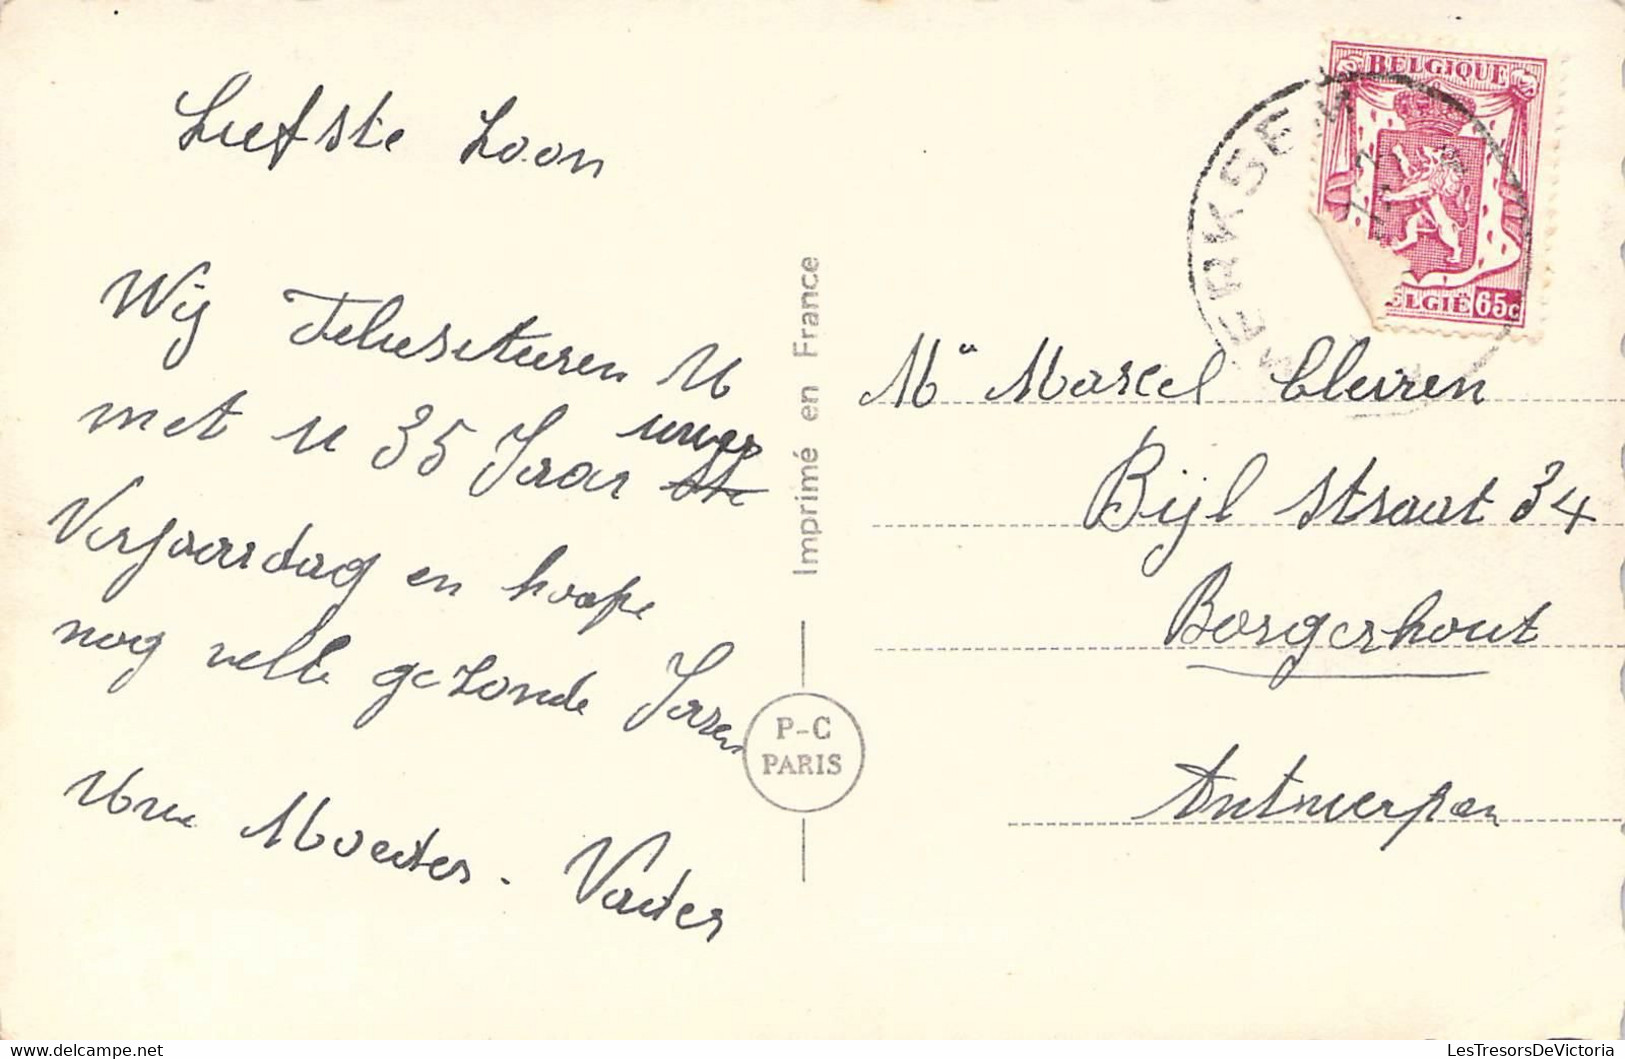 Liefste Loon
Wij Felusiteren U
met u 35 Jaar
Verjaardag en hoope
nog velle gezonde Jaren
Uwe Moeder. Vader
Imprimé en France
P-C
PARIS
BELGIQUE
BELGIË 65c
MERKSEM
Mr Marcel Cleiren
Bijl straat 34
Borgerhout
Antwerpen
LesTresorsDeVictoria